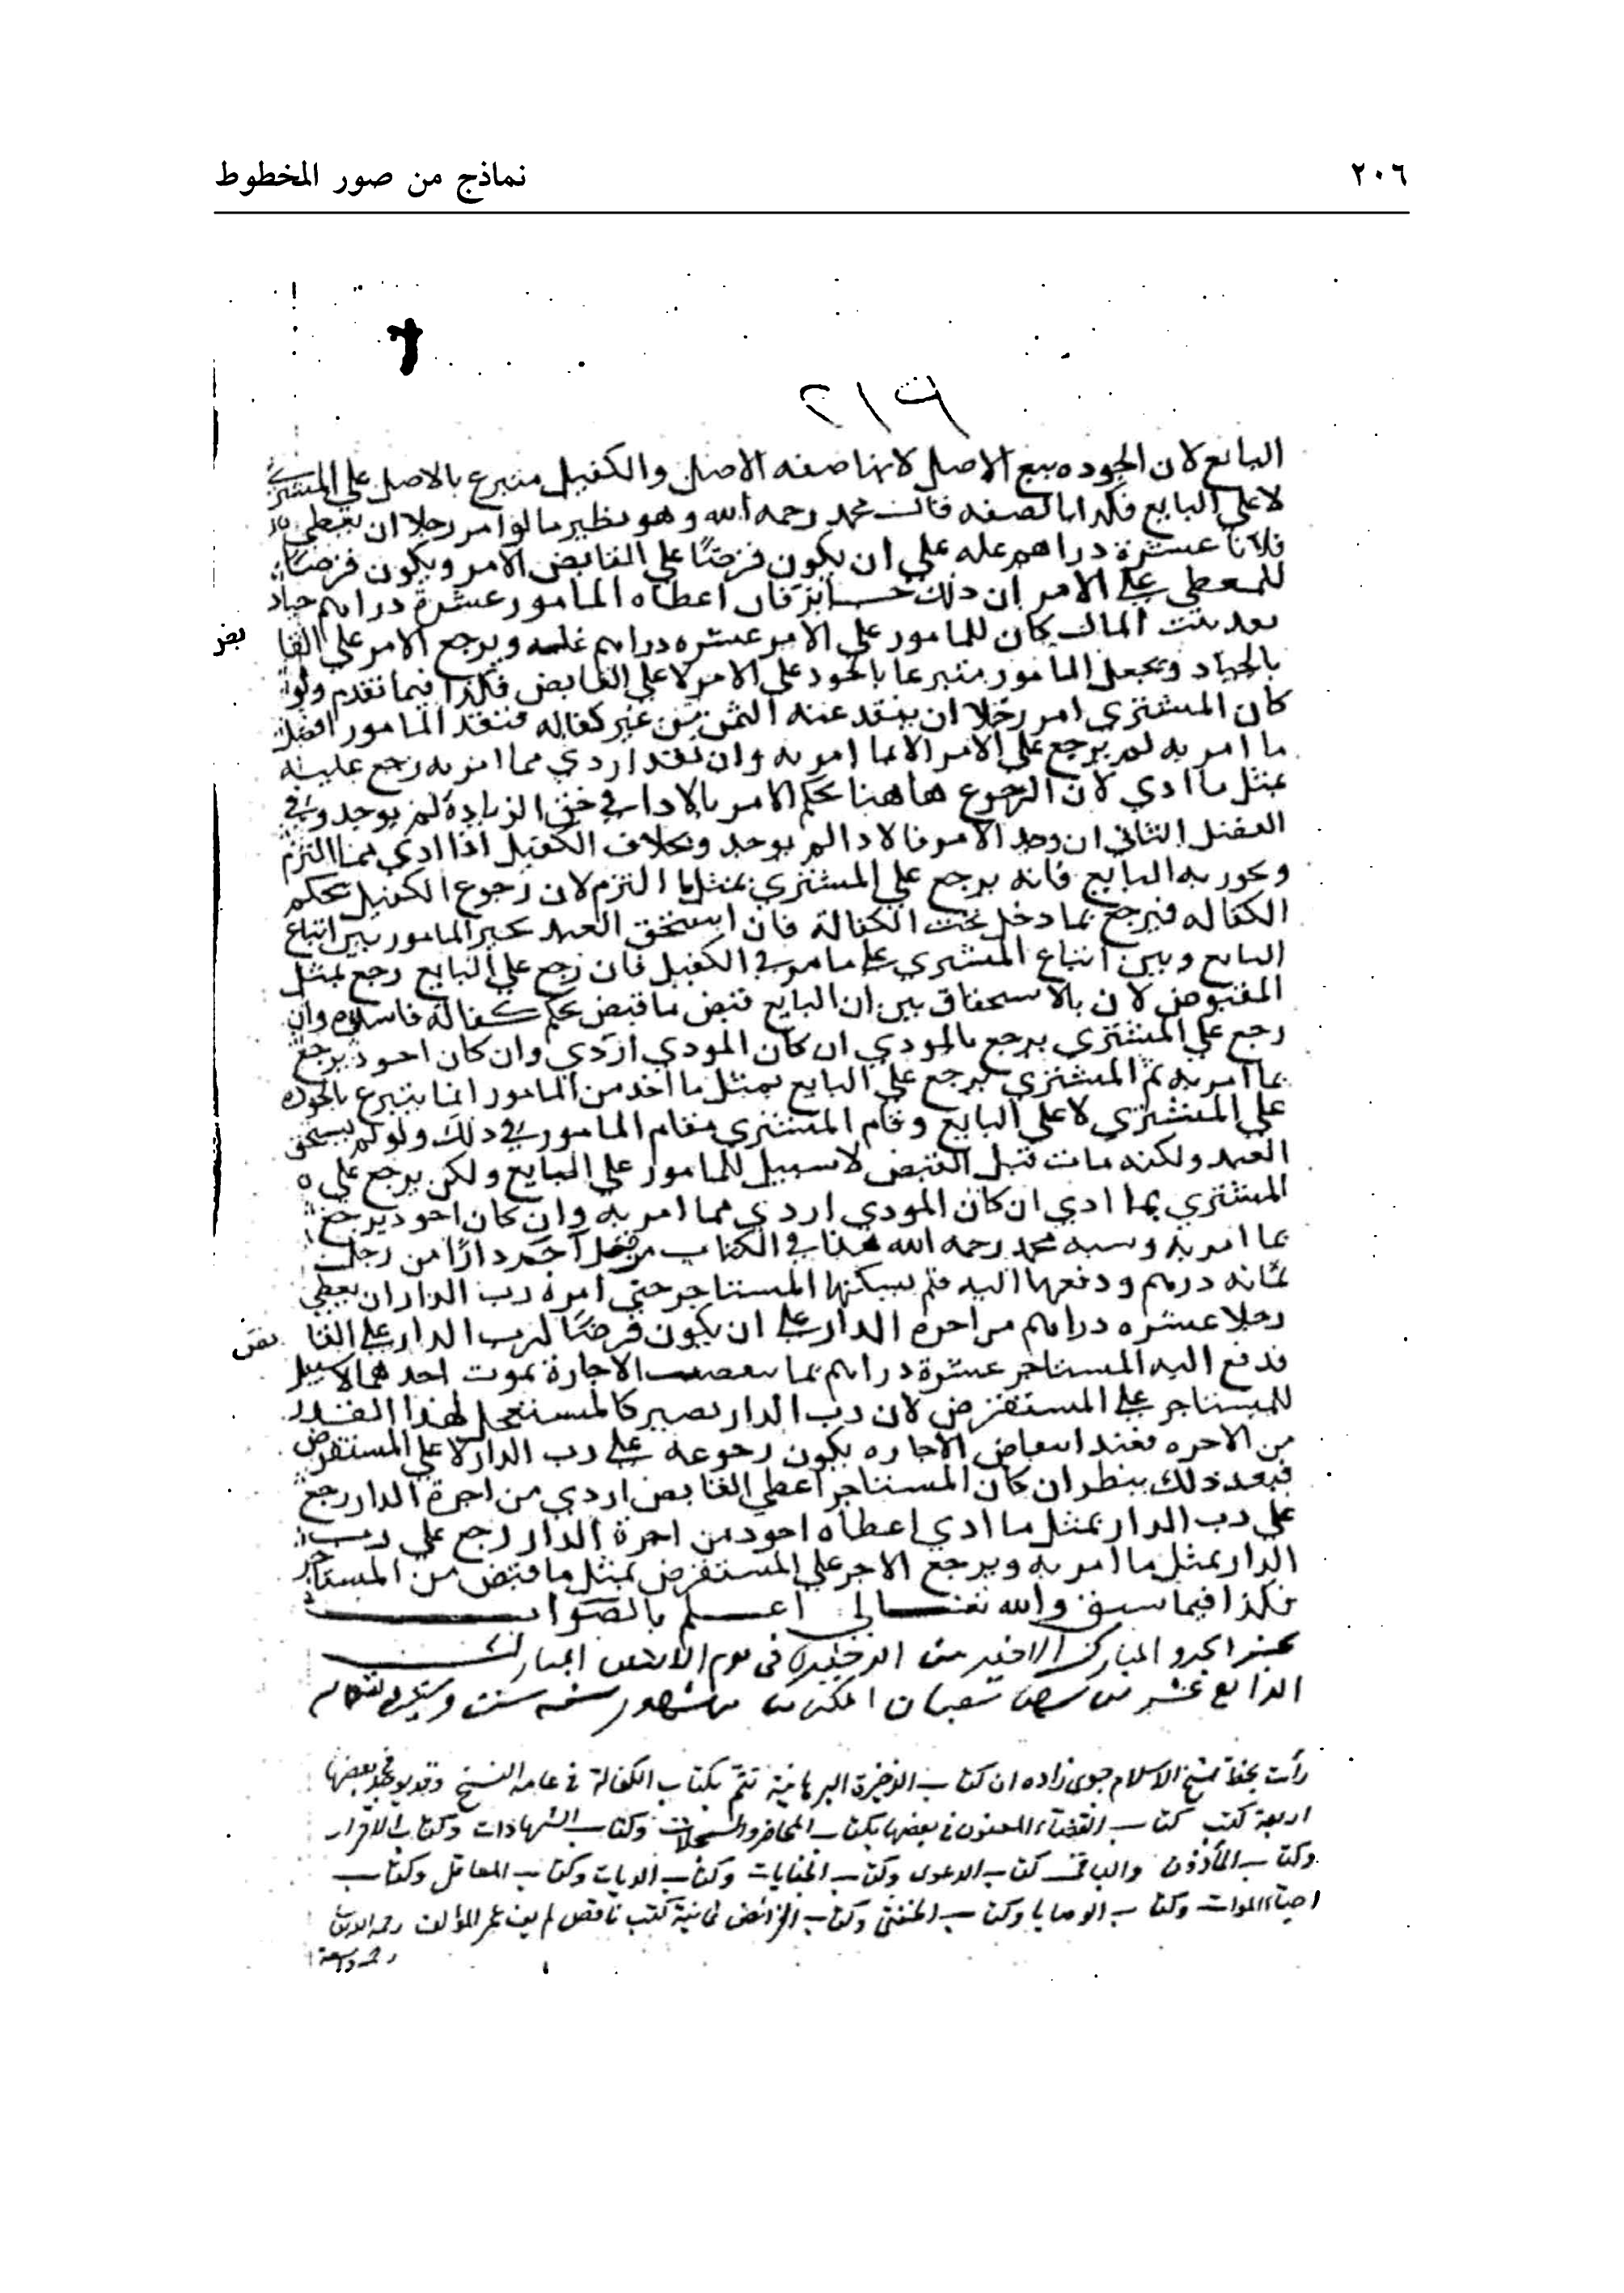 ٢٠٦
نماذج من صور المخطوط
٢١٩
البايع لان الجوده تبع الاصل لانها صفه الاصل والكفيل متبرع بالاصل على المشتري
لا على البايع فكذا بالصفه قال محمد رحمه الله وهو نظير ما لو امر رجلا ان يعطي
فلانا عشرة دراهم غله على ان يكون قرضًا على القابض للامر ويكون قرضًا
للمعطي على الامر ان ذلك جايز فان اعطاه المامور عشرة دراهم جياد
المال كان للمامور على الامر عشره دراهم غله ويرجع الامر على القا
بض
بالجياد ويجعل المامور متبرعا بالجود على الامر لا على القابض فكذا فيما تقدم ولو
كان المشتري امر رجلا ان ينقد عنه الثمن من غير كفاله فنقد المامور افضل
ما امر به لم يرجع على الامر الا بما امر به وان نقد اردي مما امر به رجع عليه
بمثل ما ادي لان الرجوع هاهنا بحكم الامر بالادا في حق الزيادة لم يوجد وفي
الفصل الثاني ان وجد الامر فالادا لم يوجد وبخلاف الكفيل اذا ادي مما التزم
به البايع فانه يرجع على المشتري بمثل ما التزم لان رجوع الكفيل بحكم
الكفاله فيرجع بما دخل تحت الكفالة فان استحق العبد يخير المامور بين اتباع
البايع وبين اتباع المشتري على ما مر في الكفيل فان رجع على البايع رجع بمثل
المقبوض لان بالاستحقاق تبين ان البايع قبض ما قبض بحكم كفالة فاسده وان
رجع على المشتري يرجع بالمودي ان كان المودي اردي وان كان اجود يرجع
بما امر به ثم المشتري يرجع على البايع بمثل ما اخذ من المامور انما يتبرع بالجوده
على المشتري لا على البايع وقام المشتري مقام المامور في ذلك ولو لم يستحق
العبد ولكنه مات قبل القبض لا سبيل للمامور على البايع ولكن يرجع على
المشتري بما ادي ان كان المودي اردي مما امر به وان كان اجود يرجع
بما امر به محمد رحمه الله هذا في الكتاب اجر دارًا من رجل
درهم ودفعها اليه فلم يسكنها المستاجر حتى امره رب الدار ان يعطي
رجلا عشره دراهم من اجره الدار على ان يكون قرضًا لرب الدار على القا
بض
فدفع اليه المستاجر عشرة دراهم الاجارة بموت احدهما لا سبيل
للمستاجر على المستقرض لان رب الدار يصير كالمستعجل لهذا القدر
من الاجره فعند انتقاض الاجاره يكون رجوعه على رب الدار لا على المستقرض
فبعد ذلك ينظر ان كان المستاجر اعطي القابض اردي من اجرة الدار رجع
على رب الدار بمثل ما ادي اعطاه اجود من اجرة الدار رجع على رب
الدار بمثل ما امر به ويرجع الاجر على المستقرض بمثل ما قبض من المستاجر
فكذا فيما سبق والله تعالى اعلم بالصواب
الجزو المبارك الاخير من الذخيرة في يوم الاثنين المبارك
الرابع عشر من شعبان المكرم من شهور سنه
رأيت بخط شيخ الاسلام جوى زاده ان كتاب الذخيرة البرهانية تتم بكتاب الكفالة في عامة النسخ وقد يوجد في بعضها
اربعة كتب كتاب القضاء المعنون في بعضها بكتاب المحاضر والسجلات وكتاب الشهادات وكتاب الاقرار
وكتاب المأذون والباقى كتاب الدعوى وكتاب الجنايات وكتاب الديات وكتاب المعاقل وكتاب
احياء الموات وكتاب الوصايا وكتاب الخنثى وكتاب الفرائض ثمانية كتب ناقص لم يف عمر المؤلف رحمه الله
رحمة واسعة